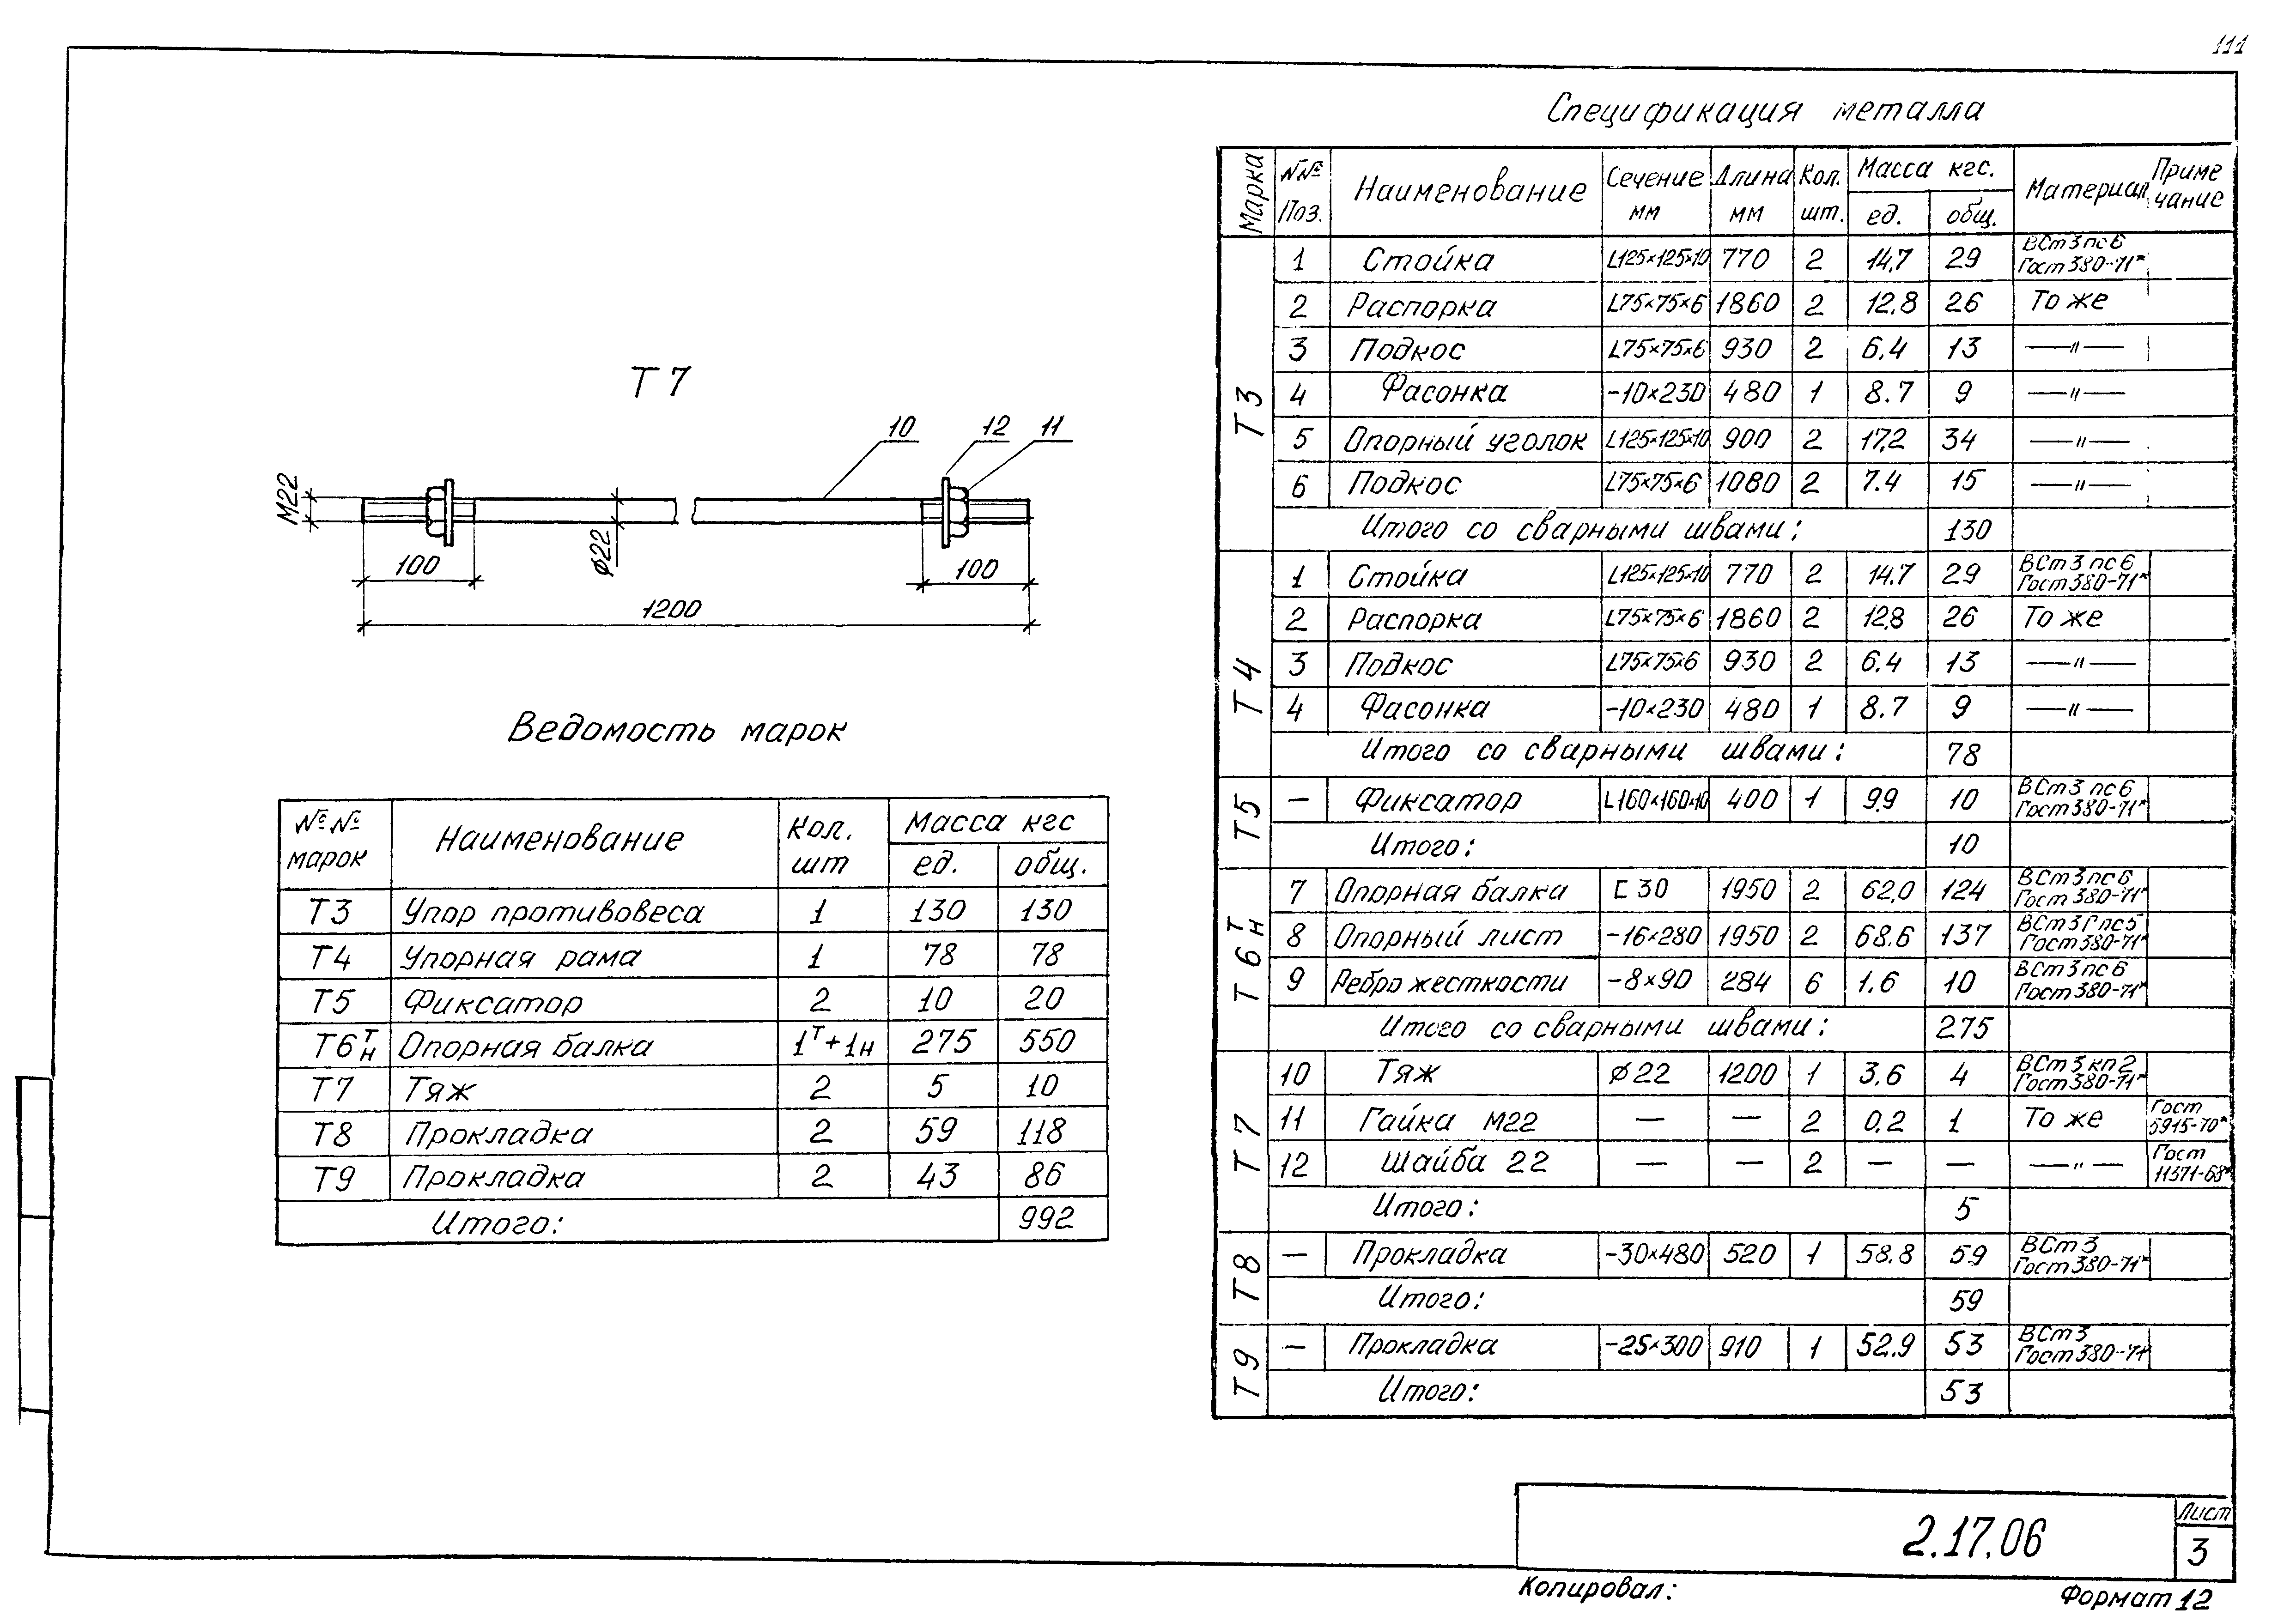 111
Спецификация металла
Марка №№ Поз. Наименование Сечение мм Длина мм Кол. шт. Масса кгс. ед. общ. Материал Приме чание
Т3
1 Стойка L125×125×10 770 2 14,7 29 ВСт3пс6 Гост380-71*
2 Распорка L75×75×6 1860 2 12.8 26 То же
3 Подкос L75×75×6 930 2 6.4 13 —"—
4 Фасонка -10×230 480 1 8.7 9 —"—
5 Опорный уголок L125×125×10 900 2 17,2 34 —"—
6 Подкос L75×75×6 1080 2 7.4 15 —"—
Итого со сварными швами: 130
Т4
1 Стойка L125×125×10 770 2 14.7 29 ВСт3пс6 Гост380-71*
2 Распорка L75×75×6 1860 2 12.8 26 То же
3 Подкос L75×75×6 930 2 6.4 13 —"—
4 Фасонка -10×230 480 1 8.7 9 —"—
Итого со сварными швами: 78
Т5
— Фиксатор L160×160×10 400 1 9.9 10 ВСт3пс6 Гост380-71*
Итого: 10
Т6 т н
7 Опорная балка С 30 1950 2 62,0 124 ВСт3пс6 Гост380-71*
8 Опорный лист -16×280 1950 2 68.6 137 ВСт3Гпс5 Гост380-71*
9 Ребро жесткости -8×90 284 6 1.6 10 ВСт3пс6 Гост380-71*
Итого со сварными швами: 275
Т7
10 Тяж ⌀22 1200 1 3.6 4 ВСт3кп2 Гост380-71*
11 Гайка М22 — — 2 0,2 1 То же Гост 5915-70*
12 Шайба 22 — — 2 — — —"— Гост 11371-68*
Итого: 5
Т8
— Прокладка -30×480 520 1 58.8 59 ВСт3 Гост380-71*
Итого: 59
Т9
— Прокладка -25×300 910 1 52.9 53 ВСт3 Гост380-71*
Итого: 53
Т7
10 12 11
М22
⌀22
100 100
1200
Ведомость марок
№№ марок Наименование Кол. шт Масса кгс ед. общ.
Т3 Упор противовеса 1 130 130
Т4 Упорная рама 1 78 78
Т5 Фиксатор 2 10 20
Т6 т н Опорная балка 1т+1н 275 550
Т7 Тяж 2 5 10
Т8 Прокладка 2 59 118
Т9 Прокладка 2 43 86
Итого: 992
2.17.06
Лист
3
Копировал:
Формат 12